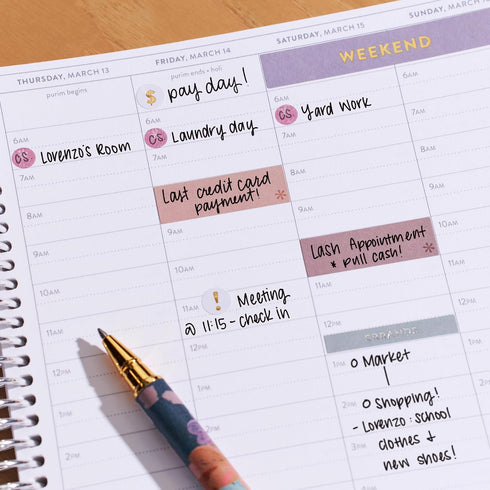 THURSDAY, MARCH 13
purim begins
6AM
CS Lorenzo's Room
7AM
8AM
9AM
10AM
11AM
12PM
1PM
2PM
FRIDAY, MARCH 14
purim ends • holi
$ pay day!
6AM
CS Laundry day
7AM
Last credit card
payment! *
9AM
10AM
11AM
! Meeting
@ 11:15 - check in
12PM
1PM
2PM
SATURDAY, MARCH 15
WEEKEND
6AM
CS Yard Work
7AM
8AM
9AM
Lash Appointment
* pull cash! *
11AM
ERRANDS
1PM
O Market
|
2PM
O Shopping!
- Lorenzo : School
clothes +
new shoes!
SUNDAY, MARCH 16
6AM
7AM
8AM
9AM
10AM
11AM
12PM
1PM